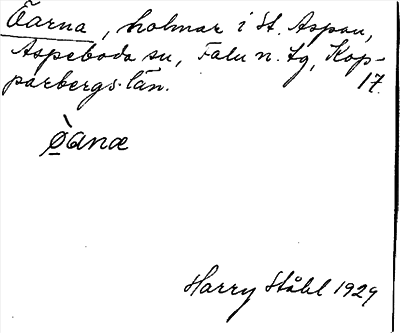 Öarna, holmar i St. Aspan,
Aspeboda sn, Falu n. tg, Kop-
parbergs län. 17.
ø̀anæ
Harry Ståhl 1929